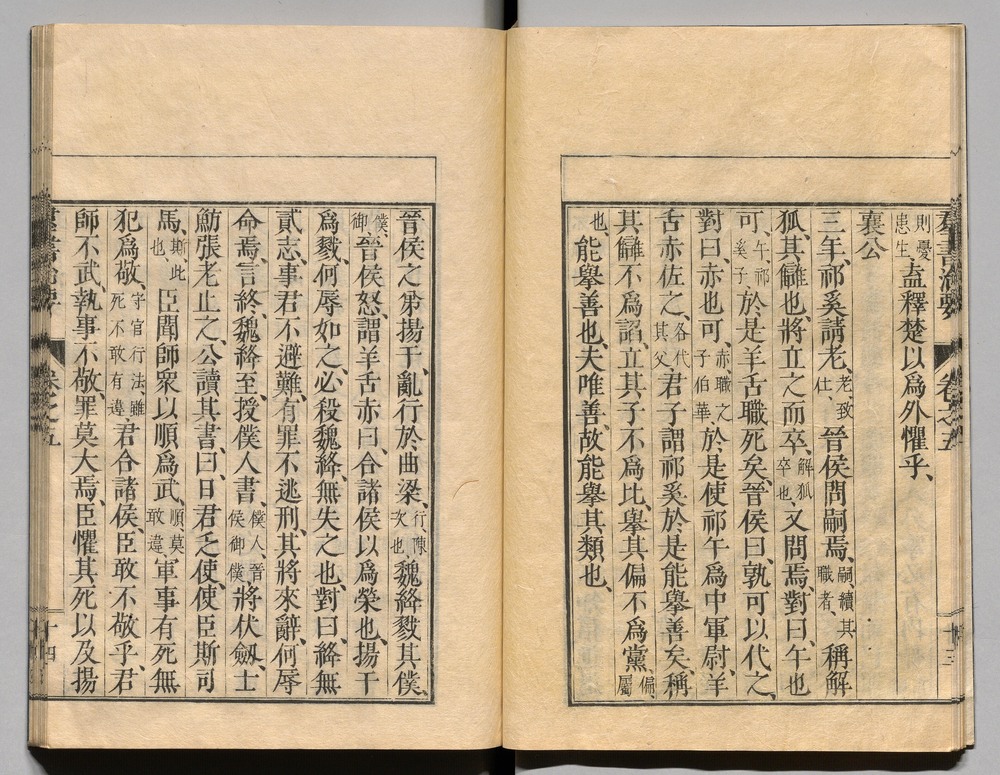 羣書治要 卷之五 十三
則憂患生、盍釋楚以爲外懼乎、
襄公
三年、祁奚請老、老、致仕、晉侯問嗣焉、嗣續其職者、稱解
狐、其讎也、將立之而卒、解狐卒也、又問焉、對曰、午也
可、午、祁奚子、於是羊舌職死矣、晉侯曰、孰可以代之、
對曰、赤也可、赤、職之子伯華、於是使祁午爲中軍尉、羊
舌赤佐之、各代其父、君子謂祁奚於是能舉善矣、稱
其讎不爲諂、立其子不爲比、舉其偏不爲黨、偏、屬
也、能舉善也、夫唯善、故能舉其類也、
晉侯之弟揚干、亂行於曲梁、行、陳次也、魏絳戮其僕、
僕、御、晉侯怒、謂羊舌赤曰、合諸侯以爲榮也、揚干
爲戮、何辱如之、必殺魏絳、無失之也、對曰、絳無
貳志、事君不避難、有罪不逃刑、其將來辭、何辱
命焉、言終、魏絳至、授僕人書、僕人、晉侯御僕、將伏劔、士
魴張老止之、公讀其書、曰、日君乏使、使臣斯司
馬、斯、此也、臣聞師衆以順爲武、順、莫敢違、軍事有死無
犯爲敬、守官行法雖死不敢有違、君合諸侯、臣敢不敬乎、君
師不武、執事不敬、罪莫大焉、臣懼其死以及揚
羣書治要 卷之五 十四